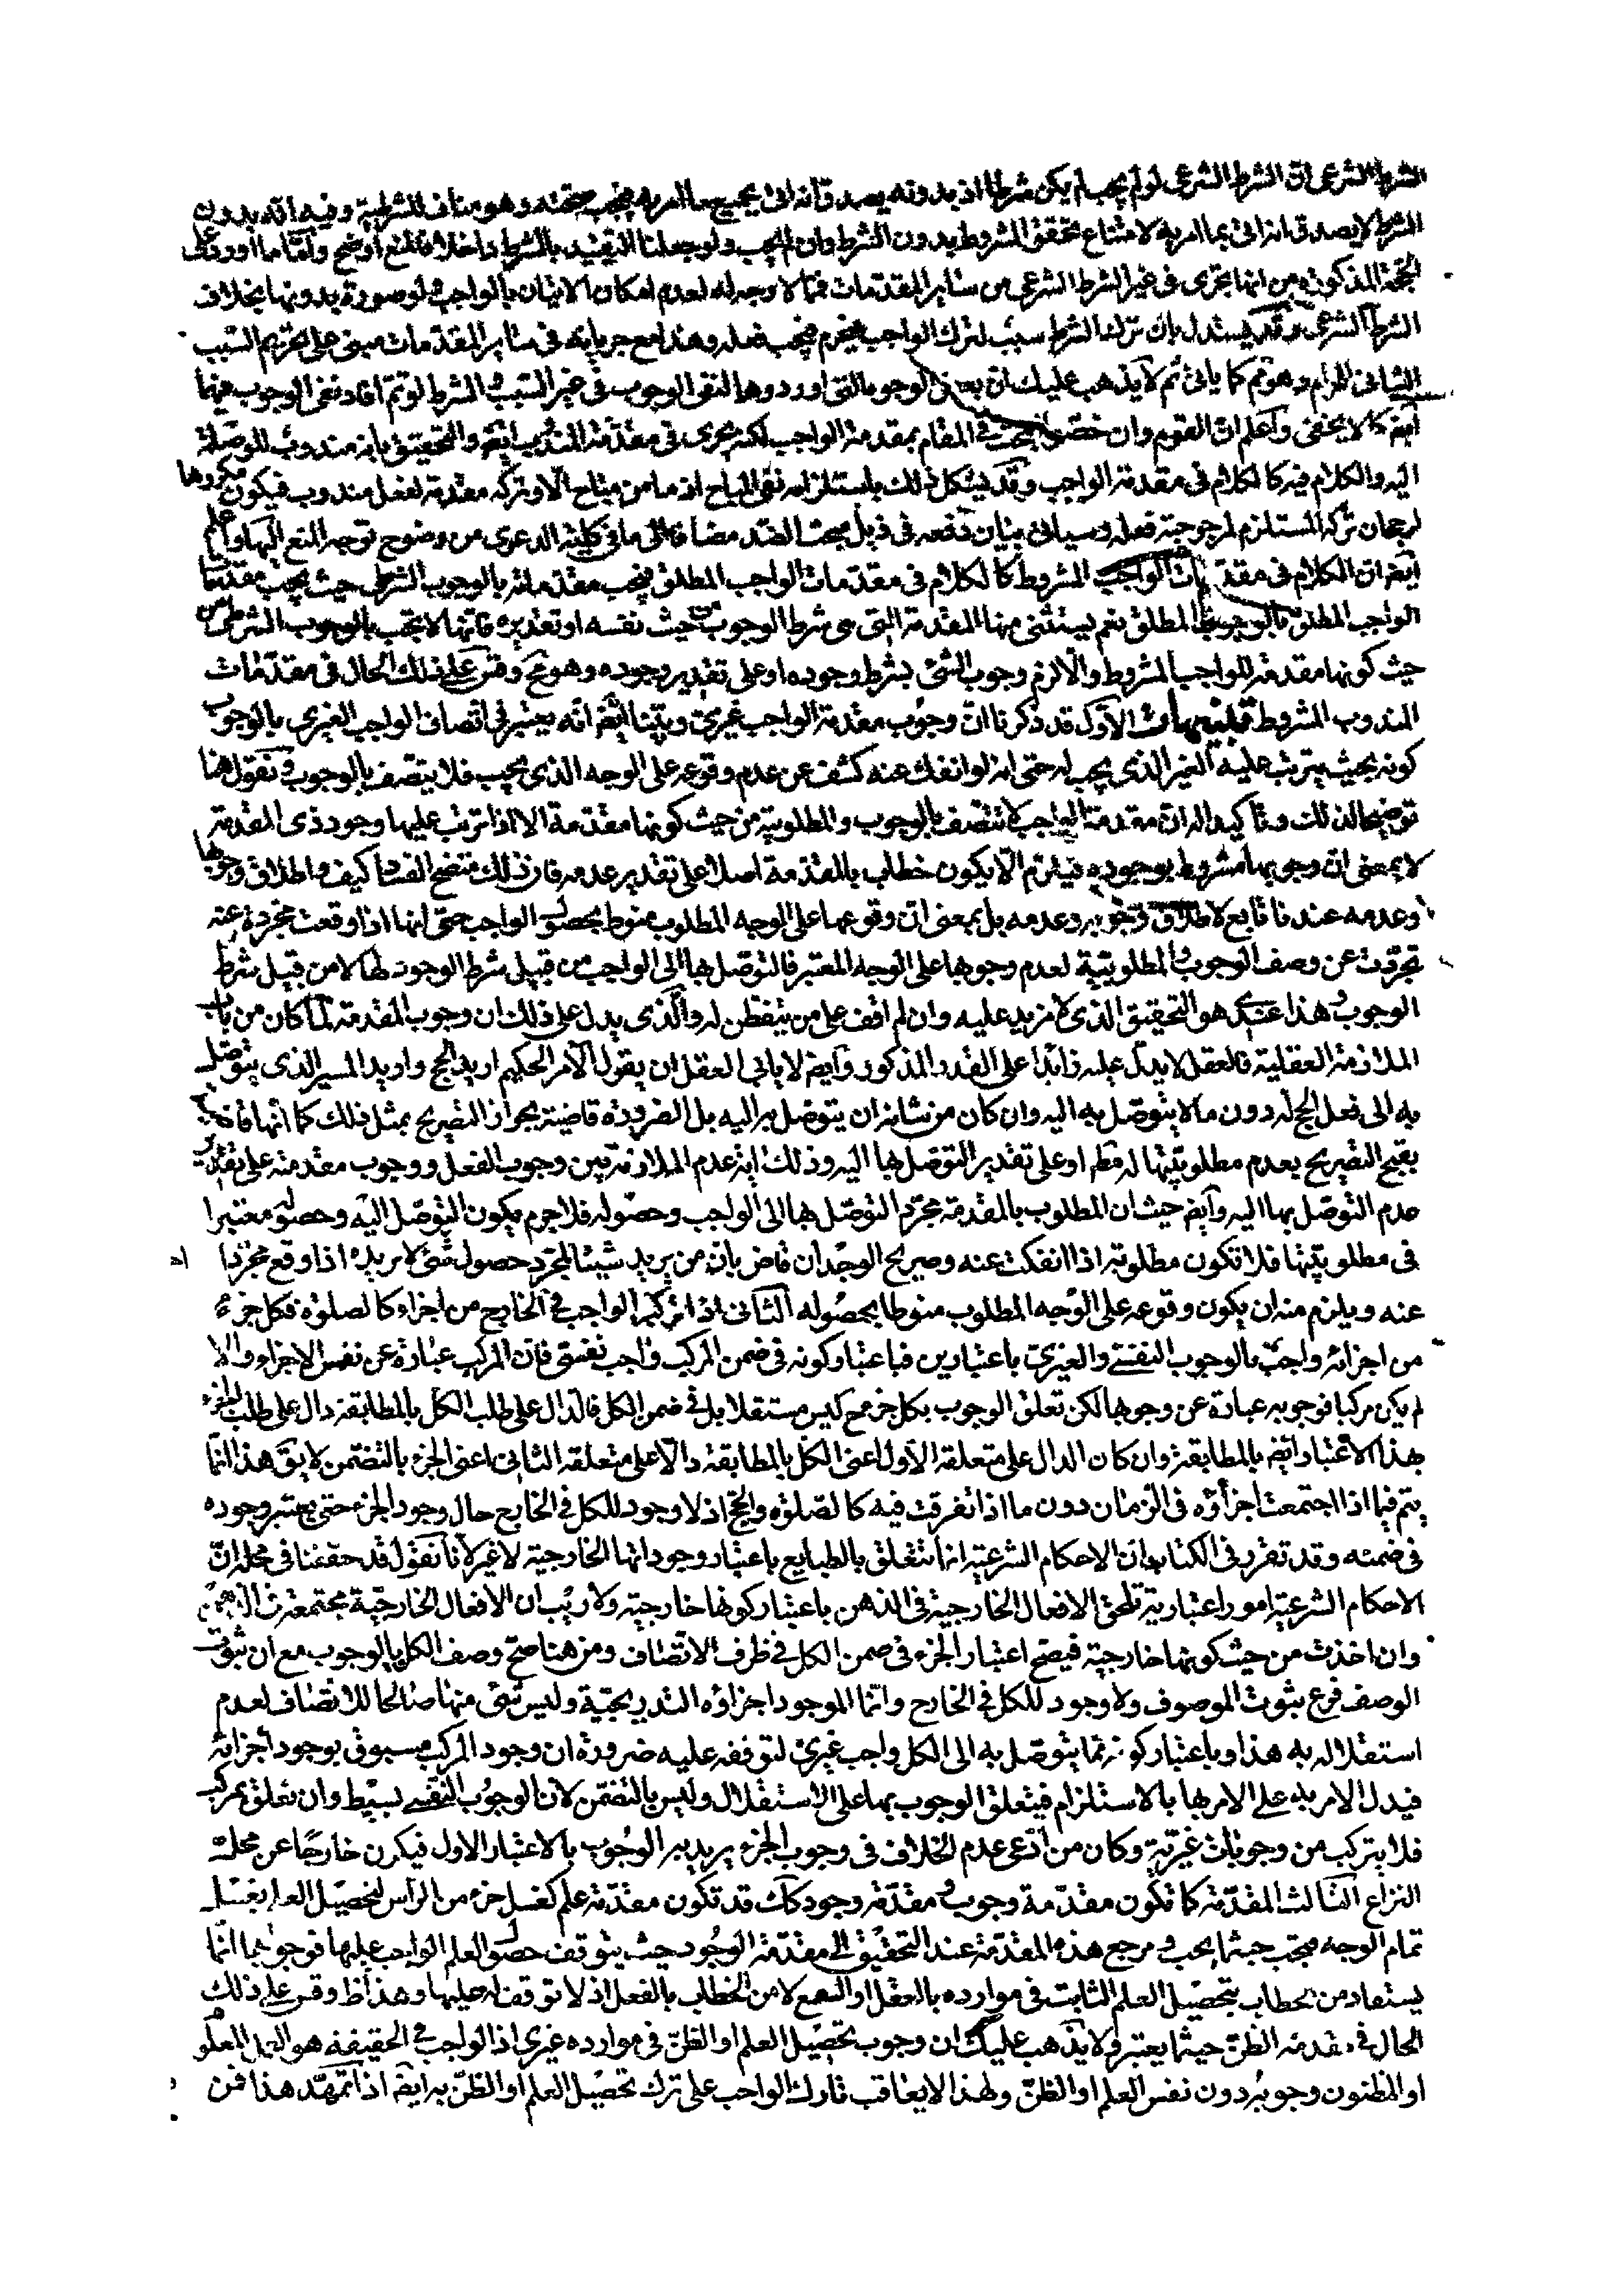 الشرط الشرعى ان الشرط الشرعى لو لم يجب لم يكن شرطا اذ بدونه يصدق انه اتى بجميع ما امر به فيجب صحته وهو مناف للشرطية وفيه انه بدون
الشرط لا يصدق انه اتى بما امر به لامتناع تحقق المشروط بدون الشرط وان لم يجب ولو جعلنا التقييد بالشرط داخلا فالمنع اوضح واما ما اورد على
الحجة المذكورة من انها تجرى فى غير الشرط الشرعى من سائر المقدمات فمما لا وجه له لعدم امكان الاتيان بالواجب ولو صورة بدونها بخلاف
الشرط الشرعى وقد يستدل بان ترك الشرط سبب لترك الواجب فيحرم فيجب فعله وهذا مع جريانه فى سائر المقدمات مبنى على تحريم السبب
الى الحرام وهو تم كما ياتى ثم لا يذهب عليك ان بعض الوجوه التى اوردوها لنفى الوجوب فى غير السبب او الشرط لو تم افاد نفى الوجوب فيهما
ايضا كما لا يخفى واعلم ان القوم وان خصوا البحث فى المقام بمقدمة الواجب لكنه يجرى فى مقدمة المندوب ايضا والتحقيق بانه مندوب للتوصل
اليه والكلام فيه كالكلام فى مقدمة الواجب وقد يشكل ذلك باستلزامه نفى المباح اذ ما من مباح الا وتركه مقدمة لفعل مندوب فيكون مكروها
لرجحان تركه المستلزم لمرجوحية فعله وسياتى بيان دفعه فى ذيل مبحث الضد مضافا الى ما فى كلية الدعوى من وضوح توجه المنع اليها واعلم
ايضا ان الكلام فى مقدمات الواجب المشروط كالكلام فى مقدمات الواجب المطلق فيجب مقدماته بالوجوب الشرطى حيث يجب مقدمات
الواجب المطلق بالوجوب المطلق نعم يستثنى منها المقدمة التى هى شرط الوجوب من حيث نفسه او تقديره فانها لا تجب بالوجوب الشرطى من
حيث كونها مقدمة للواجب المشروط والا لزم وجوب الشئ بشرط وجوده او على تقدير وجوده وهو مح وقس على ذلك الحال فى مقدمات
المندوب المشروط تنبيهات الاول قد ذكرنا ان وجوب مقدمة الواجب غيرى وبينا ايضا انه يعتبر فى اتصاف الواجب الغيرى بالوجوب
كونه بحيث يترتب عليه الغير الذى يجب له حتى انه لو انفك عنه كشف عن عدم وقوعه على الوجه الذى يجب فلا يتصف بالوجوب ونقول هنا
توضيحا لذلك وتاكيدا له ان مقدمة الواجب لا تتصف بالوجوب والمطلوبية من حيث كونها مقدمة الا اذا ترتب عليها وجود ذى المقدمة
لا بمعنى ان وجوبها مشروط بوجوده فيلزم الا يكون خطاب بالمقدمة اصلا على تقدير عدمه فان ذلك متضح الفساد كيف واطلاق وجوبها
وعدمه عندنا تابع لاطلاق وجوبه وعدمه بل بمعنى ان وقوعها على الوجه المطلوب منوط بحصول الواجب حتى انها اذا وقعت مجردة عنه
تجردت عن وصف الوجوب والمطلوبية لعدم وجوبها على الوجه المعتبر فالتوصل بها الى الواجب من قبيل شرط الوجود لها لا من قبيل شرط
الوجوب وهذا عندى هو التحقيق الذى لا مزيد عليه وان لم اقف على من يتفطن له والذى يدل على ذلك ان وجوب المقدمة لما كان من باب
الملازمة العقلية فالعقل لا يدل عليه زائدا على القدر المذكور وايضا لا يابى العقل ان يقول الآمر الحكيم اريد الحج واريد المسير الذى يتوصل
به الى فعل الحج له دون ما لا يتوصل به اليه وان كان من شانه ان يتوصل به اليه بل الضرورة قاضية بجواز التصريح بمثل ذلك كما انها قاضية
بقبح التصريح بعدم مطلوبيتها له مطلقا او على تقدير التوصل بها اليه وذلك اية عدم الملازمة بين وجوب الفعل ووجوب مقدمته على تقدير
عدم التوصل بها اليه وايضا حيث ان المطلوب بالمقدمة مجرد التوصل بها الى الواجب وحصوله فلا جرم يكون التوصل اليه وحصوله معتبرا
فى مطلوبيتها فلا تكون مطلوبة اذا انفكت عنه وصريح الوجدان قاض بان من يريد شيئا لمجرد حصول شئ لا يريده اذا وقع مجردا
عنه ويلزم منه ان يكون وقوعه على الوجه المطلوب منوطا بحصوله الثانى اذا تركب الواجب فى الخارج من اجزاء كالصلوة فكل جزء
من اجزائه واجب بالوجوب النفسى والغيرى باعتبارين فباعتبار كونه فى ضمن المركب واجب نفسى فان المركب عبارة عن نفس الاجزاء والا
لم يكن مركبا فوجوبه عبارة عن وجوبها لكن تعلق الوجوب بكل جزء ح ليس مستقلا بل فى ضمن الكل فالدال على طلب الكل بالمطابقة دال على طلب الجزء
بهذا الاعتبار ايضا بالمطابقة وان كان الدال على متعلقه الاول اعنى الكل بالمطابقة دالا على متعلقه الثانى اعنى الجزء بالتضمن لا يق هذا انما
يتم فيما اذا اجتمعت اجزاؤه فى الزمان دون ما اذا تفرقت فيه كالصلوة والحج اذ لا وجود للكل فى الخارج حال وجود الجزء حتى يعتبر وجوده
فى ضمنه وقد تقرر فى الكتاب ان الاحكام الشرعية انما تتعلق بالطبايع باعتبار وجوداتها الخارجية لا غير لانا نقول قد حققنا فى محله ان
الاحكام الشرعية امور اعتبارية تلحق الافعال الخارجية فى الذهن باعتبار كونها خارجية ولا ريب ان الافعال الخارجية مجتمعة فى الذهن
وان اخذت من حيث كونها خارجية فيصح اعتبار الجزء فى ضمن الكل فى ظرف الاتصاف ومن هنا صح وصف الكل بالوجوب مع ان ثبوت
الوصف فرع ثبوت الموصوف ولا وجود للكل فى الخارج وانما الموجود اجزاؤه التدريجية وليس شئ منها صالحا للاتصاف لعدم
استقلاله به هذا وباعتبار كونه مما يتوصل به الى الكل واجب غيرى لتوقفه عليه ضرورة ان وجود المركب مسبوق بوجود اجزائه
فيدل الامر به على الامر بها بالاستلزام فيتعلق الوجوب بها على الاستقلال وليس بالتضمن لان الوجوب النفسى بسيط وان تعلق بمركب
فلا يتركب من وجوبات غيرية وكان من ادعى عدم الخلاف فى وجوب الجزء يريد به الوجوب بالاعتبار الاول فيكون خارجا عن محل
النزاع الثالث المقدمة كما تكون مقدمة وجوب ومقدمة وجود كك قد تكون مقدمة علم كغسل جزء من الراس لتحصيل العلم بغسل
تمام الوجه فيجب حيثما يجب ومرجع هذه المقدمة عند التحقيق الى مقدمة الوجود حيث يتوقف حصول العلم الواجب عليها فوجوبها انما
يستفاد من خطاب بتحصيل العلم الثابت فى موارده بالعقل او السمع لا من الخطاب بالفعل اذ لا توقف له عليها وهذا ظ وقس على ذلك
الحال فى مقدمة الظن حيثما يعتبر ولا يذهب عليك ان وجوب تحصيل العلم او الظن فى موارده غيرى اذ الواجب فى الحقيقة هو العمل المعلوم
او المظنون وجوبه دون نفس العلم او الظن ولهذا لا يعاقب تارك الواجب على ترك تحصيل العلم او الظن به ايضا اذا تمهد هذا فمن